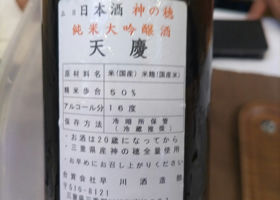 品目 日本酒 神の穂
純米大吟醸酒
天慶
原材料名 米(国産) 米麹(国産米)
精米歩合 50%
アルコール分 16度
保存方法 冷暗所保管
(冷蔵推奨)
・お酒は20歳になってから
・三重県産神の穂全量使用
・お早めにお召し上がりください
合資会社早川酒造部
〒510-8121
三重県三重郡